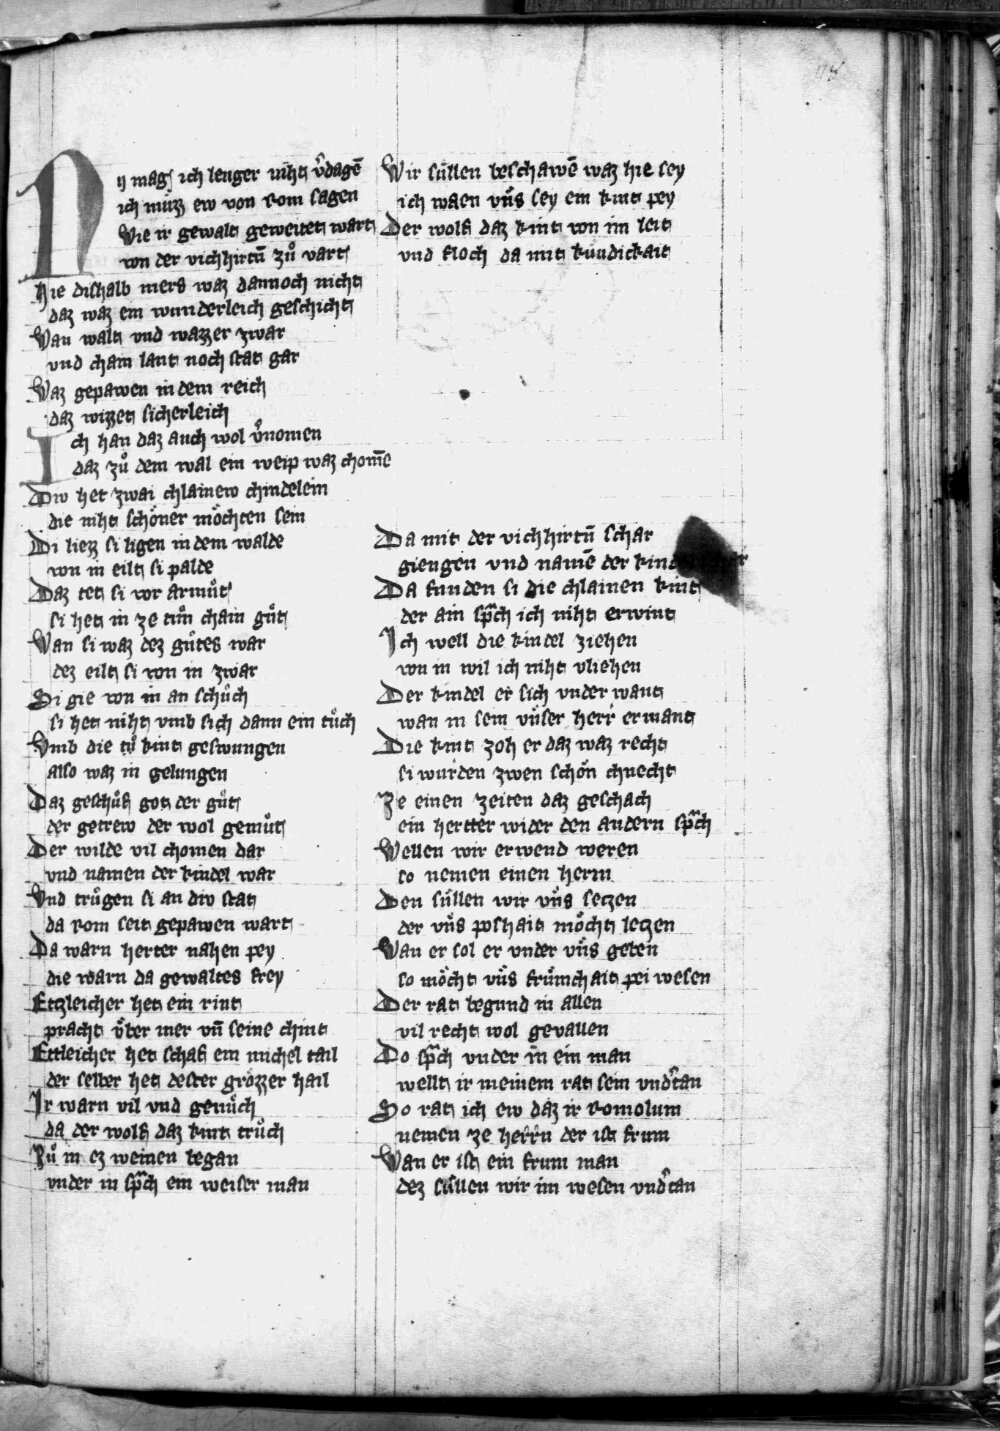 Nu mag ich lenger niht v̉dagē
ich muͤzz ew von rom sagen
Wie ir gewalt geweitet wart
von der vichhirtn̄ zuͦ vart
Hie dishalb mers waz dannoch nicht
daz waz ein wunderleich geschicht
Wan walt vnd wazzer zwar
vnd cham lant noch stat gar
Waz gepawen in dem reich
daz wizzet sicherleich
Ich han daz auch wol v̉nomen
daz zuͦ dem wal ein weip waz chom̄e
Div het zwai chlainew chindelein
die niht schoͤner moͤchten sein
Di liezz si ligen in dem walde
von in eilt si palde
Daz tet si vor armuͦt
si het in ze tuͦn chain guͦt
Wan si waz dez guͦtes war
dez eilt si von in zwar
Si gie von in an schuͦch
si het niht vmb sich dann ein tuͦch
Vmb die tuͦ kint geswungen
also waz in gelungen
Daz geschuͦf got der guͦt
der getrew der wol gemuͦt
Der wilde vil chomen dar
vnd namen der kindel war
Vnd truͦgen si an div stat
da rom seit gepawen wart
Da warn herter nahen pey
die warn da gewaltes frey
Etzleicher het ein rint
pracht vͤber mer vn̄ seine chint
Ettleicher het schaf ein michel tail
der selber het dester groͤzzer hail
Ir warn vil vnd genuͦch
da der wolf daz kint truͦch
Zuͦ in ez weinen began
vnder in sp̄ch ein weiser man
Wir suͤllen beschawē waz hie sey
ich waen vn̉s sey ein kint pey
Der wolf daz kint von im leit
vnd floch da mit kuͤndickait
Da mit der vichhirtn̄ schar
giengen vnd namē der kindel war
Da funden si die chlainen kint
der ain sp̄ch ich niht erwint
Ich well die kindel ziehen
von in wil ich niht vliehen
Der kindel er sich vnder want
wan in sein vnͤser herr ermant
Die kint zoh er daz waz recht
si wurden zwen schoͤn chnecht
Ze einen zeiten daz geschach
ein hertter wider den andern sp̄ch
Wellen wir erwend weren
so nemen einen herrn
Den suͤllen wir vnͤs seczen
der vnͤs poshait moͤcht leczen
Wan er sol er vnder vnͤs geben
so moͤcht vnͤs fruͤmchait pei wesen
Der rat begund in allen
vil recht wol gevallen
Do sp̄ch vnder in ein man
wellt ir meinem rat sein vnd̉tan
So rat ich ew daz ir romolum
nemen ze herrn der ist frum
Wan er ist ein frum man
dez suͤllen wir im wesen vnd̉tan